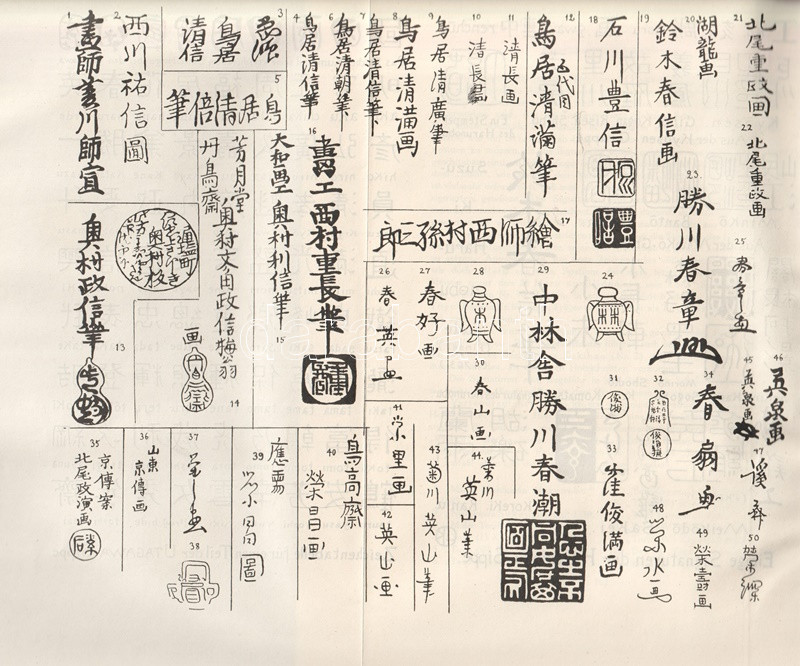 1
畫師菱川師宣
2
西川祐信圖
3
鳥居
清信
4
鳥居清信筆
5
鳥居清倍筆
6
鳥居清朝筆
7
鳥居清信筆
8
鳥居清満画
9
鳥居清廣筆
10
清長畵
11
清長画
12
五代目
鳥居清満筆
13
奥村政信筆
14
芳月堂
丹鳥齋
奥村文角政信梅翁
画
15
大和畫工
奥村利信筆
16
畵工西村重長筆
重長
17
繪師西村孫三郎
18
石川豊信
豊信
19
鈴木春信画
20
湖龍画
21
北尾重政画
22
北尾重政画
23
勝川春章
24
林
25
春章画
26
春英画
27
春好画
28
林
29
中林舎勝川春潮
30
春山画
31
俊満
32
33
窪俊満画
34
春扇画
35
京傳案
北尾政演画
36
山東
京傳画
37
栄之画
38
39
應需
栄昌圖
40
鳥高齋
栄昌画
41
栄里画
42
英山画
43
菊川英山筆
44
菊川
英山筆
45
英泉画
46
英泉画
47
溪斎
48
栄水画
49
榮壽画
50